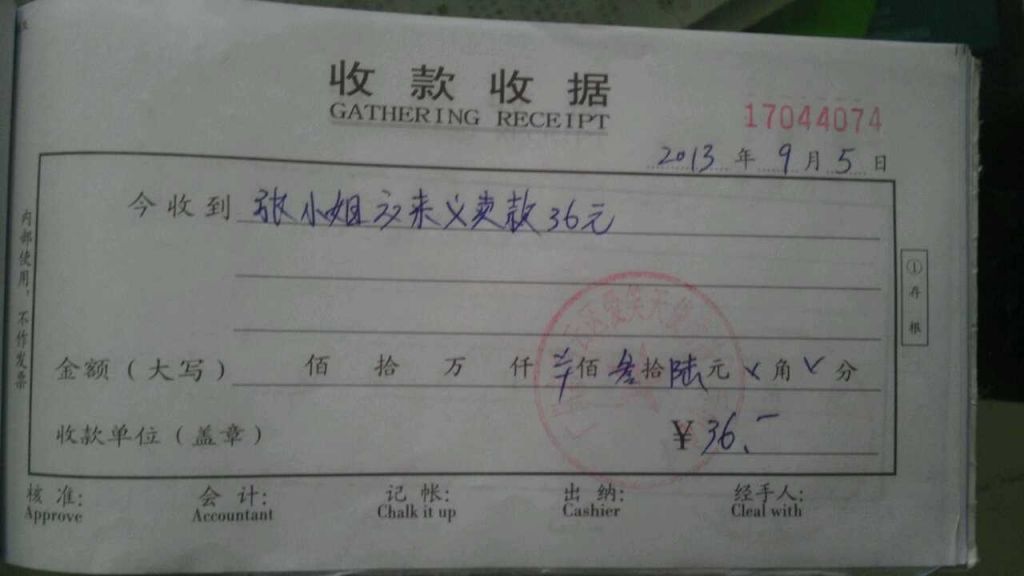 收款收据
GATHERING RECEIPT
17044074
2013年9月5日
今收到 张小姐交来义卖款36元
金额(大写) 佰 拾 万 仟 佰叁拾陆元 角 分
¥36.-
收款单位(盖章)
核准: 会计: 记帐: 出纳: 经手人:
Approve Accountant Chalk it up Cashier Cleal with
内部使用,不作发票
①存根